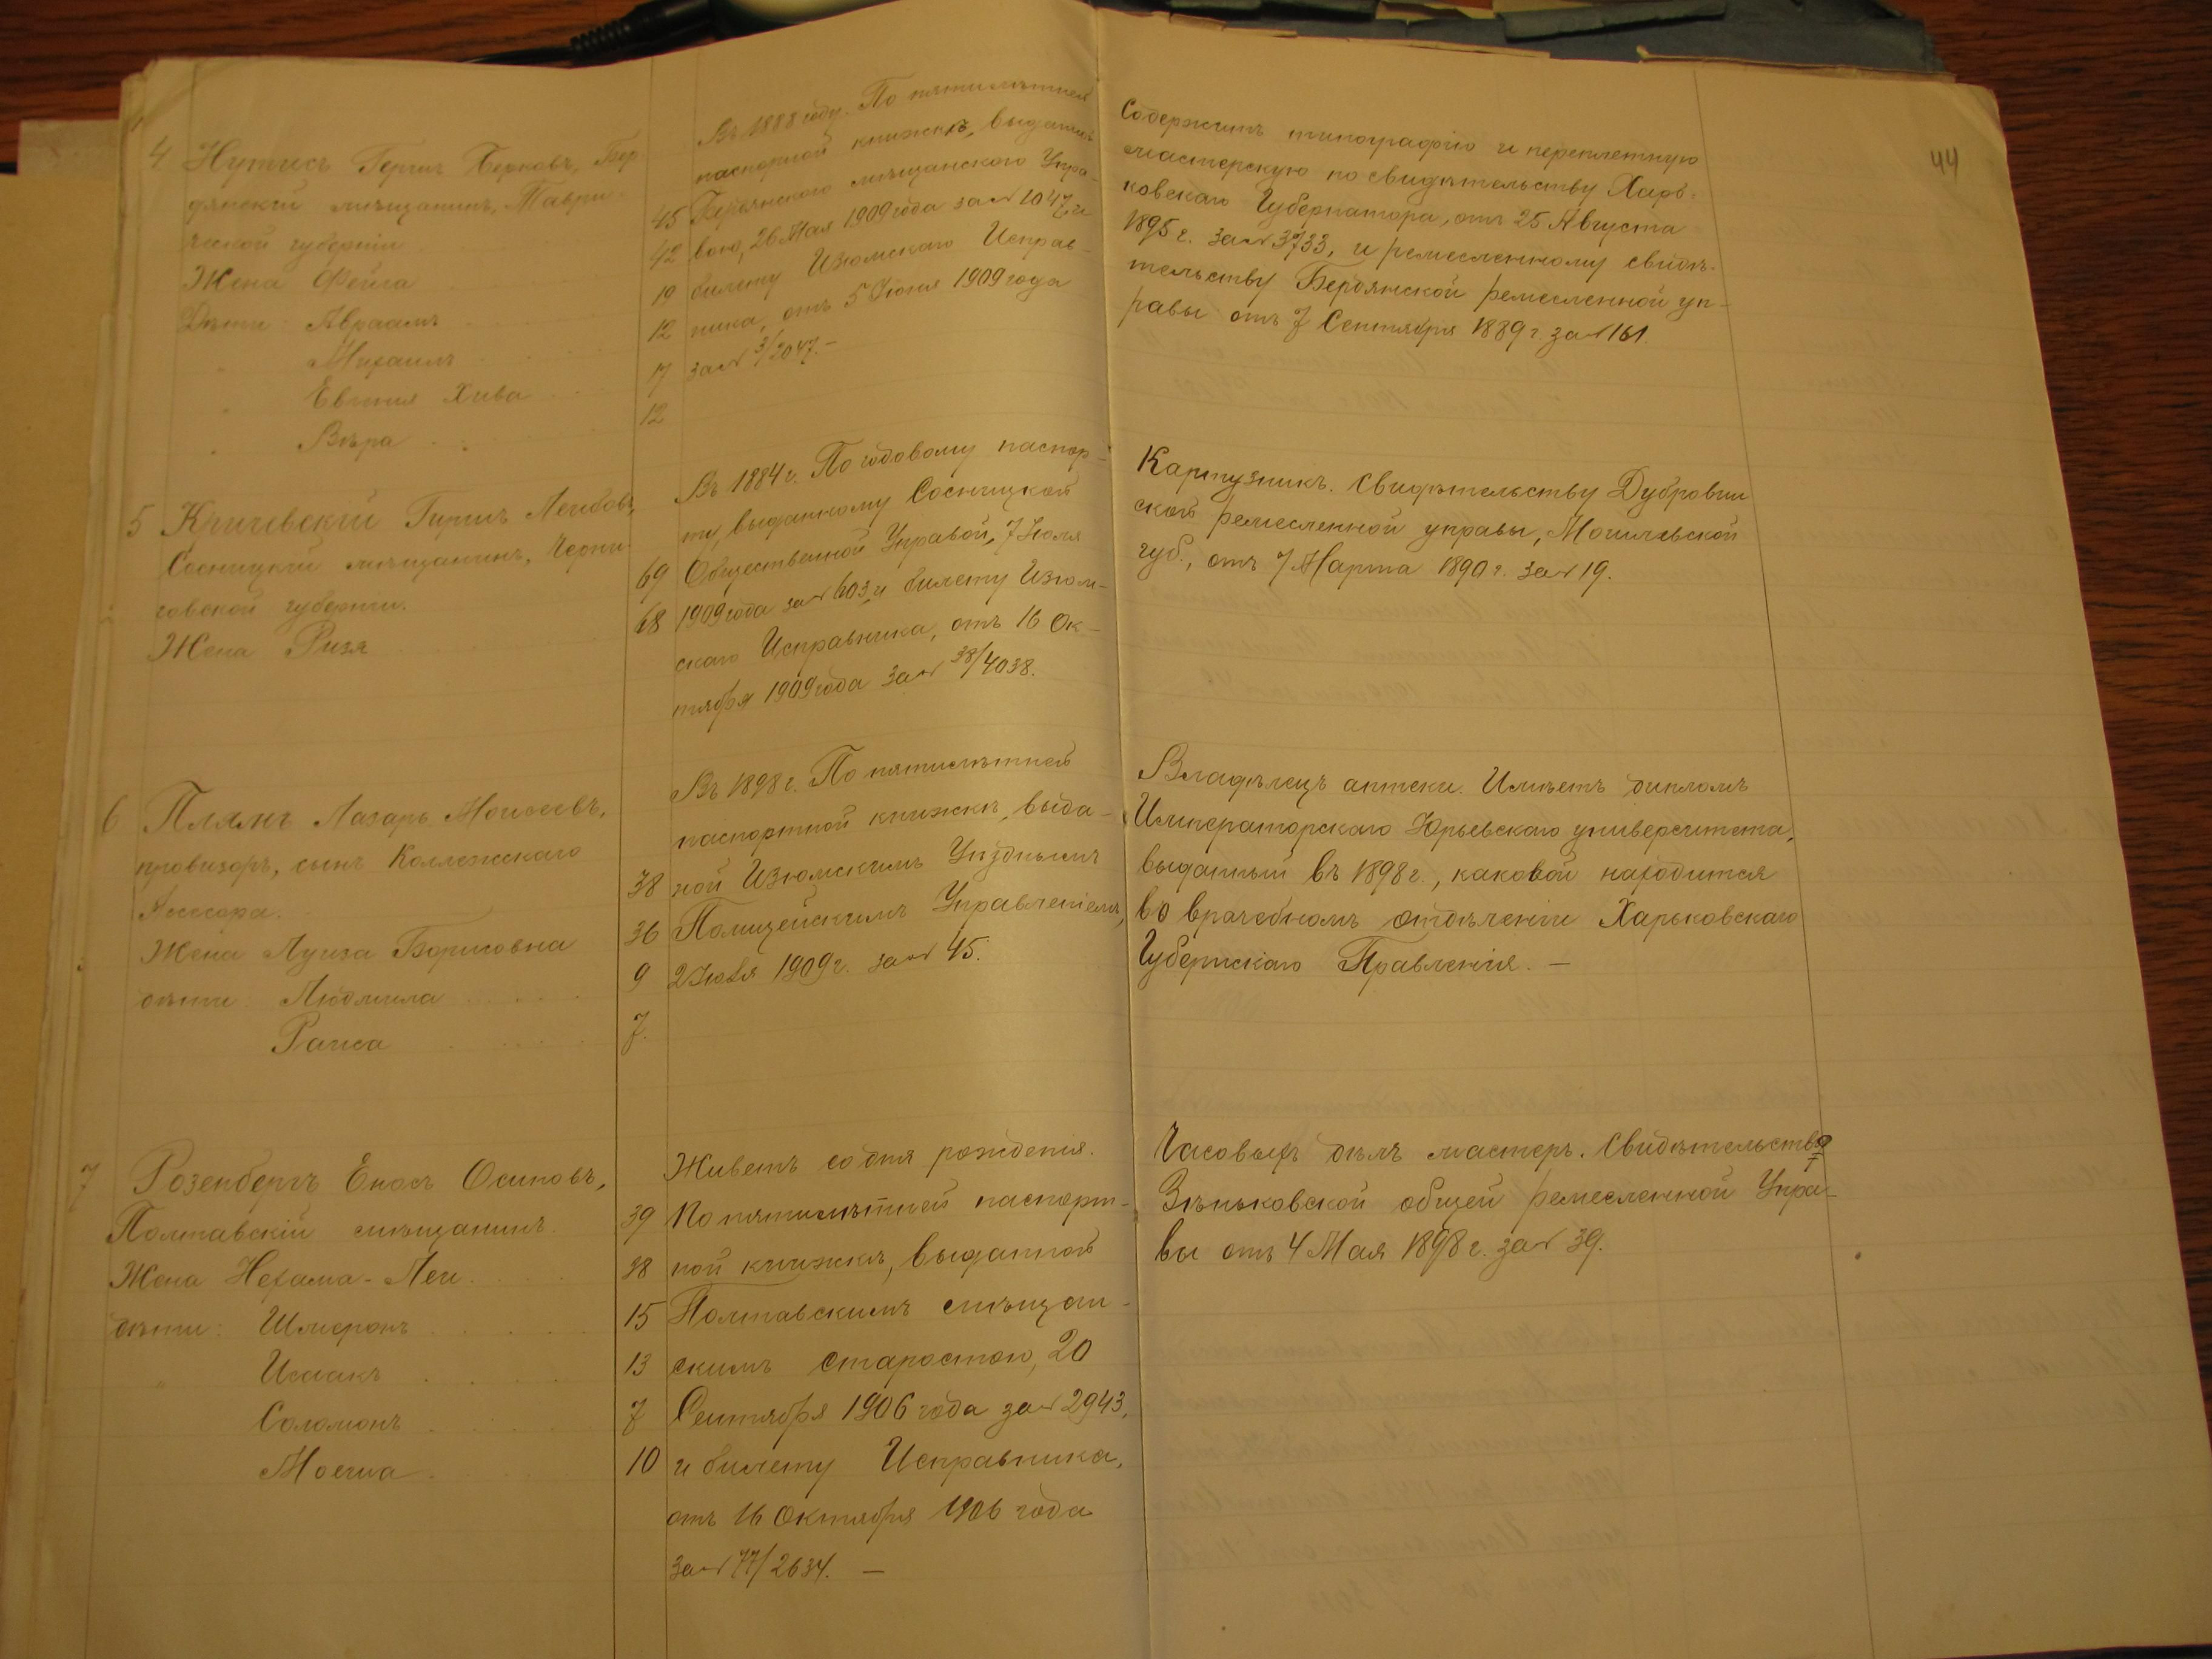 44
4 Нутисъ Гершъ Берковъ, Бер
дянскій мѣщанинъ, Таври-
ческой губерніи
Жена Фейга
Дѣти: Авраамъ
" Михаилъ
" Евгенія Хива
" Вѣра
45
42
19
12
17
12
Въ 1888 году. По пятилѣтней
паспортной книжкѣ, выданной
Бердянскою мѣщанскою Упра-
вою, 26 Мая 1909 года за № 1047, и
билету Изюмскаго Исправ-
ника, отъ 5 Іюня 1909 года
за № 3/2047.-
Содержитъ типографію и переплетную
мастерскую по свидѣтельству Харь-
ковскаго Губернатора, отъ 25 Августа
1895 г. за № 3733, и ремесленному свидѣ-
тельству Бердянской ремесленной уп-
равы отъ 7 Сентября 1889 г. за № 161.
5 Кричевскій Гиршъ Лейбовъ,
Сосницкій мѣщанинъ, Черни-
говской губерніи.
Жена Ризя
69
68
Въ 1884 г. По годовому паспор-
ту, выданному Сосницкой
Общественной Управой, 7 Іюля
1909 года за № 603, и билету Изюм-
скаго Исправника, отъ 16 Ок-
тября 1909 года за № 38/4038.
Картузникъ. Свидѣтельству Дубровин
ской ремесленной управы, Могилевской
губ., отъ 7 Марта 1890 г. за № 19.
6 Плямъ Лазарь Моисеевъ,
провизоръ, сынъ Коллежскаго
Асесора.
Жена Луиза Борисовна
дѣти: Людмила
Раиса
38
36
9
7.
Въ 1898 г. По пятилѣтней
паспортной книжкѣ, выдан-
ной Изюмскимъ Уѣзднымъ
Полицейскимъ Управленіемъ,
2 Іюля 1909 г. за № 45.
Владѣлецъ аптеки. Имѣетъ дипломъ
Императорскаго Юрьевскаго университета,
выданный въ 1898 г., каковой находится
во врачебномъ отдѣленіи Харьковскаго
Губернскаго Правленія. —
7 Розенбергъ Енохъ Осиповъ,
Полтавскій мѣщанинъ.
Жена Нехама-Леи
дѣти: Шлиомъ
" Исаакъ
Соломонъ
Моеша
39
38
15
13
7
10
Живетъ со дня рожденія.
По пятилѣтней паспорт-
ной книжкѣ, выданной
Полтавскимъ мѣщан-
скимъ старостою, 20
Сентября 1906 года за № 2943,
и билету Исправника,
отъ 16 Октября 1906 года
за № 77/2634. —
Часовыхъ дѣлъ мастеръ. Свидѣтельство
Зѣньковской общей ремесленной Упра-
вы отъ 4 Мая 1898 г. за № 39.